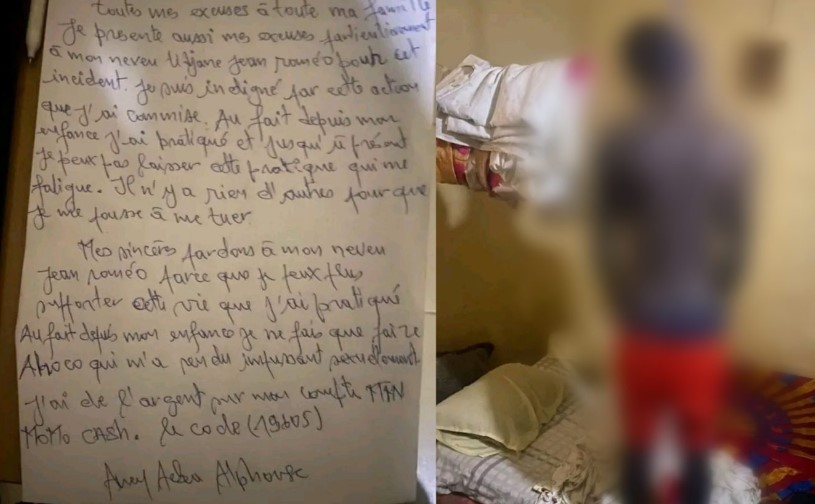 toutes mes excuses à toute ma famille
Je presente aussi mes excuses particulièrement
à mon neveu Jean roméo pour cet
incident. Je suis indigné par cette action
que j'ai commise. Au fait depuis mon
enfance j'ai pratiqué et jusqu'à présent
Je peux pas laisser cette pratique qui me
fatigue. Il n'y a rien d'autres pour que
Je me pousse à me tuer
Mes sincères pardons à mon neveu
Jean roméo parce que je peux plus
supporter cette vie que j'ai pratiqué
Au fait depuis mon enfance Je ne fais que faire
qui m'a rendu impuissant sexuellement
J'ai de l'argent sur mon compte MTN
MoMo CASH. le code
Alphonse